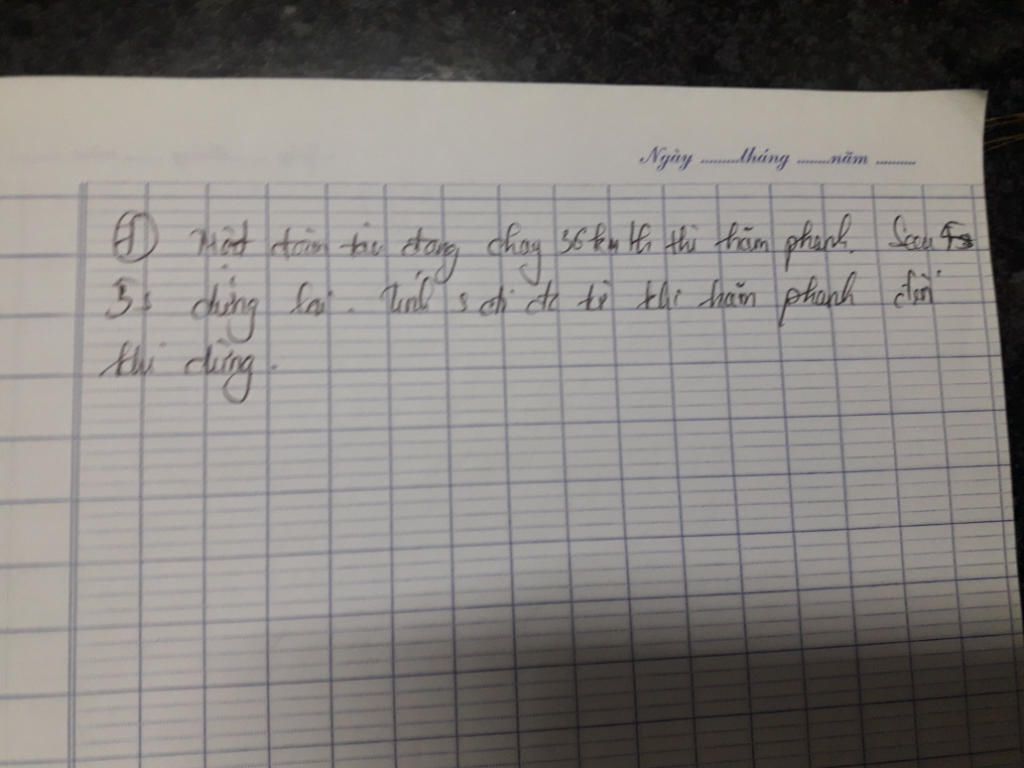 Ngày ........tháng .......năm ........
① Một đoàn tàu đang chạy 36km/h thì hãm phanh. Sau
5s dừng lại. Tính s đi đc từ khi hãm phanh đến
khi dừng.